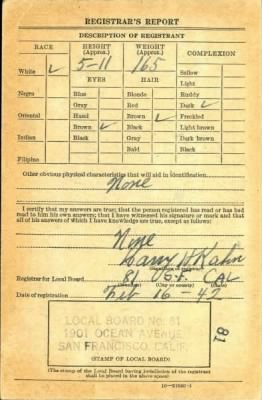 REGISTRAR'S REPORT
DESCRIPTION OF REGISTRANT
RACE HEIGHT (Approx.) WEIGHT (Approx.) COMPLEXION
White ✓ 5-11 165 Sallow
EYES HAIR Light
Negro Blue Blonde Ruddy
Gray Red Dark ✓
Oriental Hazel Brown ✓ Freckled
Brown ✓ Black Light brown
Indian Black Gray Dark brown
Bald Black
Filipino
Other obvious physical characteristics that will aid in identification
None
I certify that my answers are true; that the person registered has read or has had
read to him his own answers; that I have witnessed his signature or mark and that
all of his answers of which I have knowledge are true, except as follows:
None
Harry H Kahn
Registrar for Local Board 81 S.F. CAL
(City or county)
Date of registration Feb 16-42
LOCAL BOARD No. 81
1901 OCEAN AVENUE
SAN FRANCISCO, CALIF.
81
(STAMP OF LOCAL BOARD)
(The stamp of the Local Board having jurisdiction of the registrant
shall be placed in the above space)